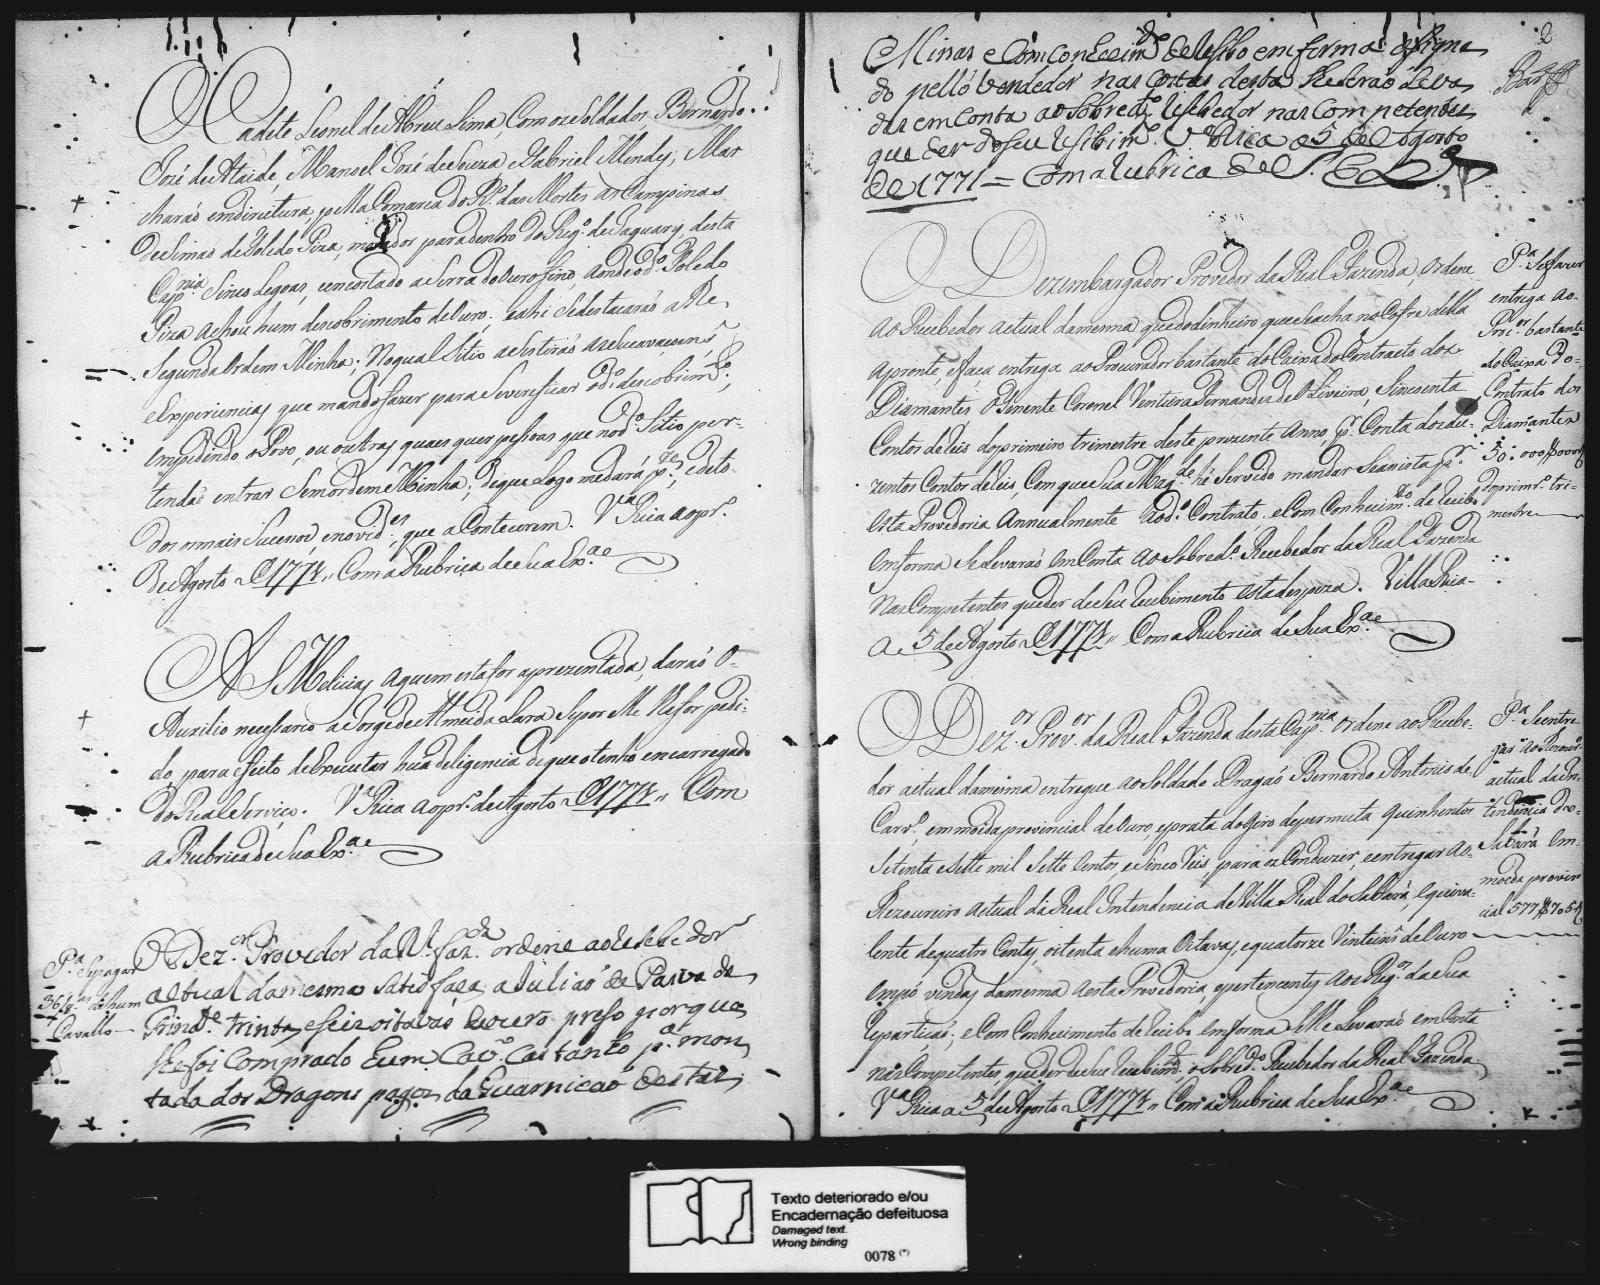 O Cadete Leonel de Abreu Lima, Com os Soldados Bernardo
José de Ataide, Manoel José de Souza e Gabriel Mendes, Mar
charaõ em direitura, pella Comarca do R.º das Mortes as Campinas
de Simaõ de Toledo Piza, morador para dentro do Reg.º de Jaguary, desta
Cap.nia Sinco Legoas, encostado a Serra do Ouro fino, aonde o d.º Toledo
Piza achou hum descobrimento de Ouro. e ahi Se destacaraõ athe
Segunda Ordem Minha; No qual Sitio asestiraõ as
e Experiencias que mando fazer para Se verificar o d.º descobrim.to;
empedindo o Povo, ou outras quaes quer pessoas que no d.º Sitio per-
tendaõ entrar Sem ordem Minha; de que Logo me dará p.te, e de to-
dos os mais Sucessos, e novid.es que aContecerem. V.a Rica ao pr.º
de Agosto de 1771 „ Com a Rubrica de Sua Ex.ª
AS Melicias a quem esta for aprezentada, daraõ o
Auxilio necessario a Jorge de Almeida Lara Se por elle lhe for pedi-
do, para efeito de Executar hua deligencia de que o tenho encarregado
do Real Serviço. V.ª Rica ao pr.º de Agosto de 1771 „ Com
a Rubrica de Sua Ex.ª
P.ª Se pagar
36/8.as de hum
Cavallo
O Dez.or Provedor da R.l faz.da ordene ao Recebedor
actual da mesma Satisfaça, a Juliaõ de Paiva da
Trind.e trinta, e seis oitavas de ouro preso porque
lhe foi comprado hum Cav.º Castanho p.ª mon
tada dos Dragons pagos da Guarniçaõ destas
2
Minas e Com Conhecim.to de Recibo em forma asigna
do pello vendedor nas costas desta Se lheraõ Leva
das em Conta ao Sobred.º Recebedor nas Competentes
que der do seu Recibim.to V.ª Rica a 5 de Agosto
de 1771 = Com a rubrica de S. Ex.ª
O Dezembargador Provedor da Real Fazenda, Ordene
ao Recebedor actual da mesma que do dinheiro que Se acha no Cofre della
apronte, e faça entrega ao Procurador bastante do Caixa do Contracto dos
Diamantes, O Tenente Coronel Ventura Fernandes de Oliveira, Sincoenta
Contos de reis do primeiro trimestre deste prezente Anno, p.r Conta dos du-
zentos Contos de reis, Com que Sua Mag.de hé Servido mandar Se asista p.r
esta Provedoria Annualmente ao d.º Contrato. e Com Conhecim.to de recibo
em forma Se Levaraõ em Conta ao Sobred.º Recebedor da Real Fazenda
nas Competentes que der de Seu recibimento esta despeza. Villa Rica
a 5 de Agosto de 1771 „ Com a Rubrica de Sua Ex.ª
P.ª Se fazer
entrega ao
Proc.or bastante
do Caixa do
Contrato dos
Diamantes
50:000$000
do prim.º tri-
mestre
O Dez.or Prov.or da Real Fazenda desta Cap.nia Ordene ao Recebe-
dor actual da mesma entregue ao Soldado Dragaõ Bernardo Antonio de
Carv.º em moeda provincial de Ouro e prata do giro de permuta quinhentos
Setenta e Sette mil Sette Centos, e Sinco reis, para os Conduzir, e entregar ao
Thezoureiro actual da Real Intendencia de Villa Real do Sabará, equiva-
lente de quatro Centos, oitenta e huma Oitavas, e quatorze Vinteins de Ouro
em pó vindas da mesma a esta Provedoria e pertencentes aos Reg.os da Sua
repartiçaõ; e Com Conhecimento de recibo em forma Se lhe Levaraõ em Conta
nas Competentes que der de Seu recibim.to, o Sobred.º Recebedor da Real Fazenda.
V.ª Rica a 5 de Agosto de 1771 „ Com a Rubrica de Sua Ex.ª
P.ª Se entre
gar ao Thezour.º
actual da In-
tendencia do
Sabará em
moeda provin
cial 577$705
Texto deteriorado e/ou
Encadernação defeituosa
Damaged text.
Wrong binding
0078 (*)